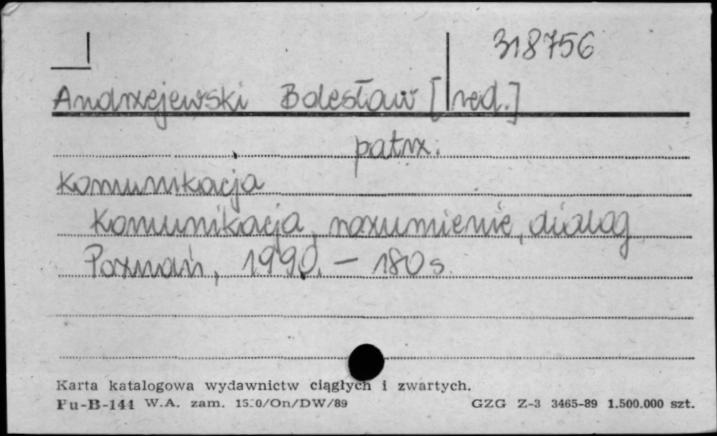 318756
Andrzejewski Bolesław [red.]
patrz.
Komunikacja
Komunikacja, rozumienie, dialog
Poznań, 1990. – 180 s.
Karta katalogowa wydawnictw ciągłych i zwartych.
Pu-B-144 W.A. zam. /On/DW/89 GZG Z-3 3465-89 1.500.000 szt.